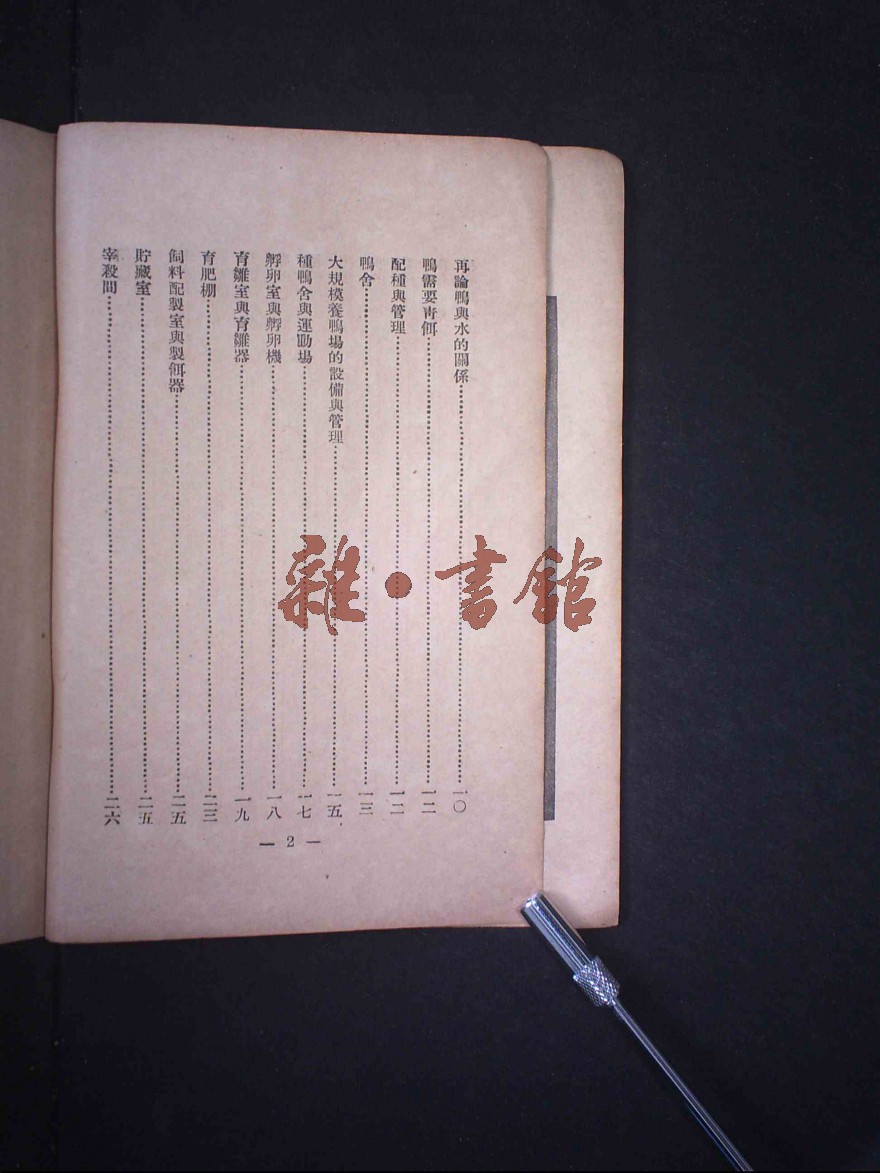 再論鴨與水的關係……一〇
鴨需要青餌……一二
配種與管理……一二
鴨舍……一三
大規模養鴨場的設備與管理……一五
種鴨舍與運動場……一七
孵卵室與孵卵機……一八
育雛室與育雛器……一九
育肥棚……二三
飼料配製室與製餌器……二五
貯藏室……二五
宰殺間……二六
— 2 —
雜·書館